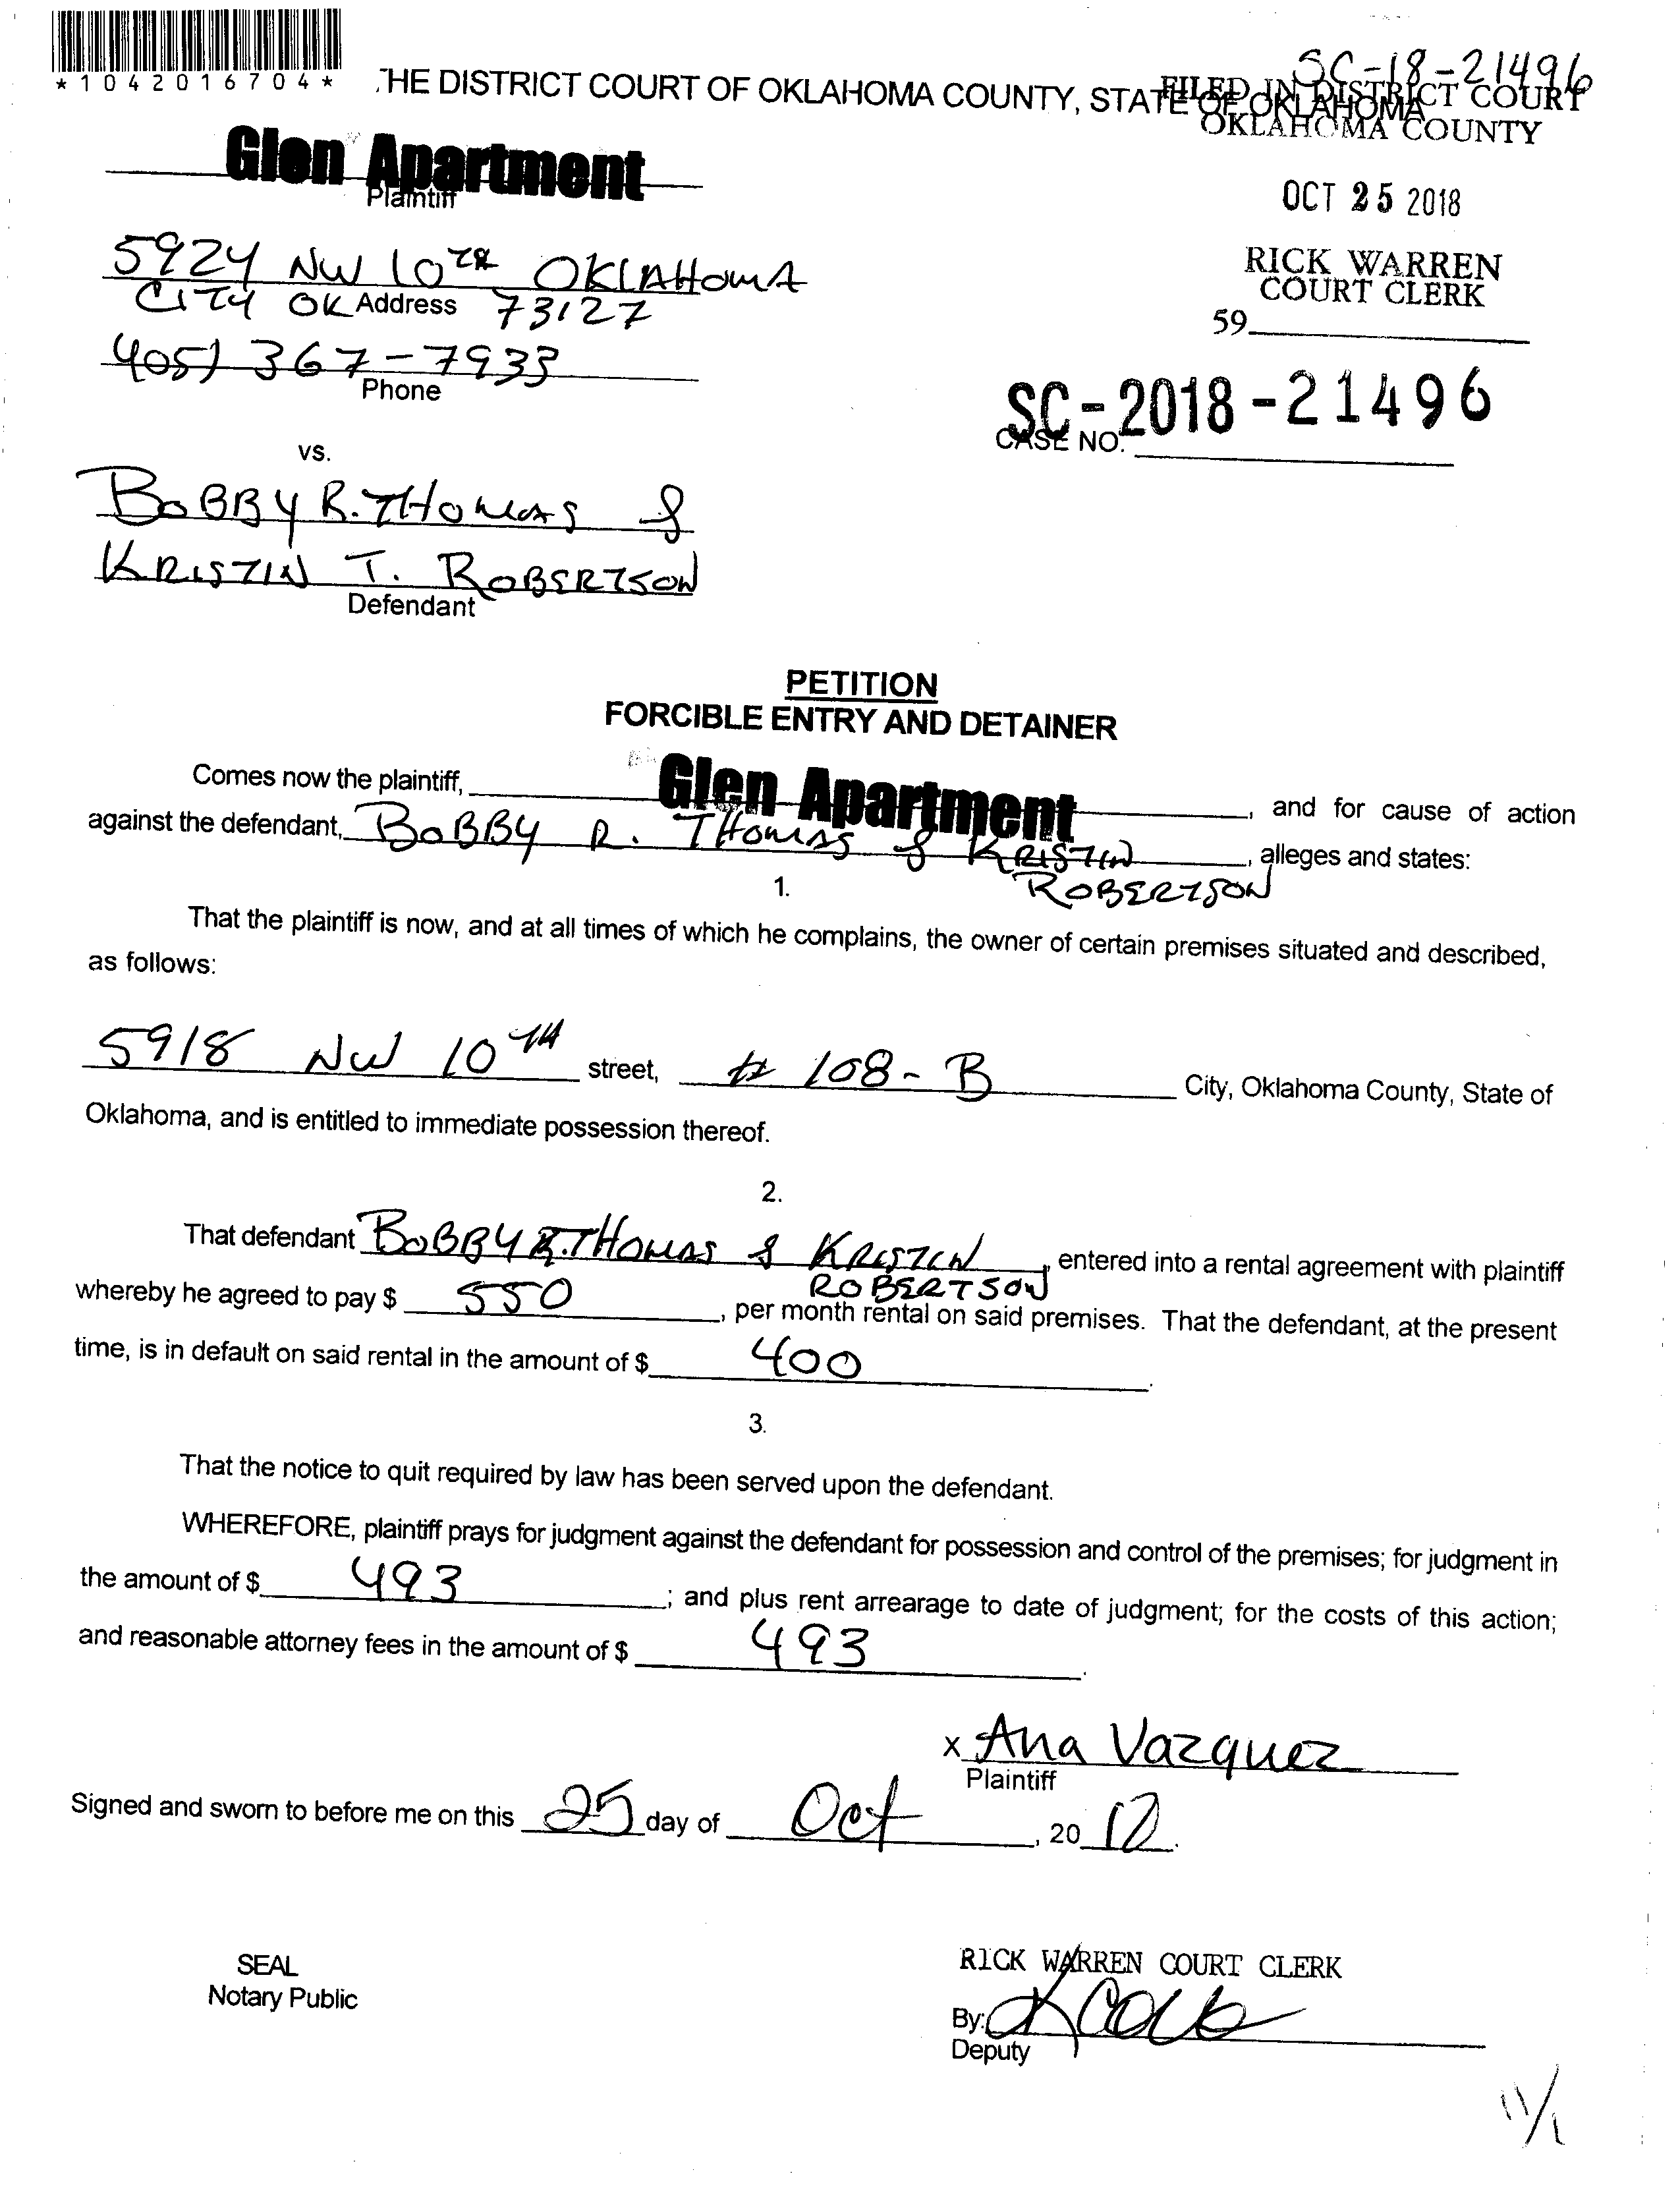 *1042016704*
THE DISTRICT COURT OF OKLAHOMA COUNTY, STATE OF OKLAHOMA
SC-18-21496
FILED IN DISTRICT COURT
OKLAHOMA COUNTY
Glen Apartment
Plaintiff
OCT 25 2018
5924 NW 10TH OKLAHOMA
CITY OK Address 73127
RICK WARREN
COURT CLERK
59
405) 367-7933
Phone
SC-2018-21496
CASE NO.
vs.
BOBBY R. THOMAS &
KRISTIN T. ROBERTSON
Defendant
PETITION
FORCIBLE ENTRY AND DETAINER
Comes now the plaintiff, Glen Apartment, and for cause of action
against the defendant, BOBBY R. THOMAS & KRISTIN, alleges and states:
ROBERTSON
1.
That the plaintiff is now, and at all times of which he complains, the owner of certain premises situated and described,
as follows:
5918 NW 10TH street, # 108-B City, Oklahoma County, State of
Oklahoma, and is entitled to immediate possession thereof.
2.
That defendant BOBBY R. THOMAS & KRISTIN, entered into a rental agreement with plaintiff
ROBERTSON
whereby he agreed to pay $ 550, per month rental on said premises. That the defendant, at the present
time, is in default on said rental in the amount of $ 400.
3.
That the notice to quit required by law has been served upon the defendant.
WHEREFORE, plaintiff prays for judgment against the defendant for possession and control of the premises; for judgment in
the amount of $ 493; and plus rent arrearage to date of judgment; for the costs of this action;
and reasonable attorney fees in the amount of $ 493.
x Ana Vazquez
Plaintiff
Signed and sworn to before me on this 25 day of Oct, 20
SEAL
Notary Public
RICK WARREN COURT CLERK
By:
Deputy
11/1